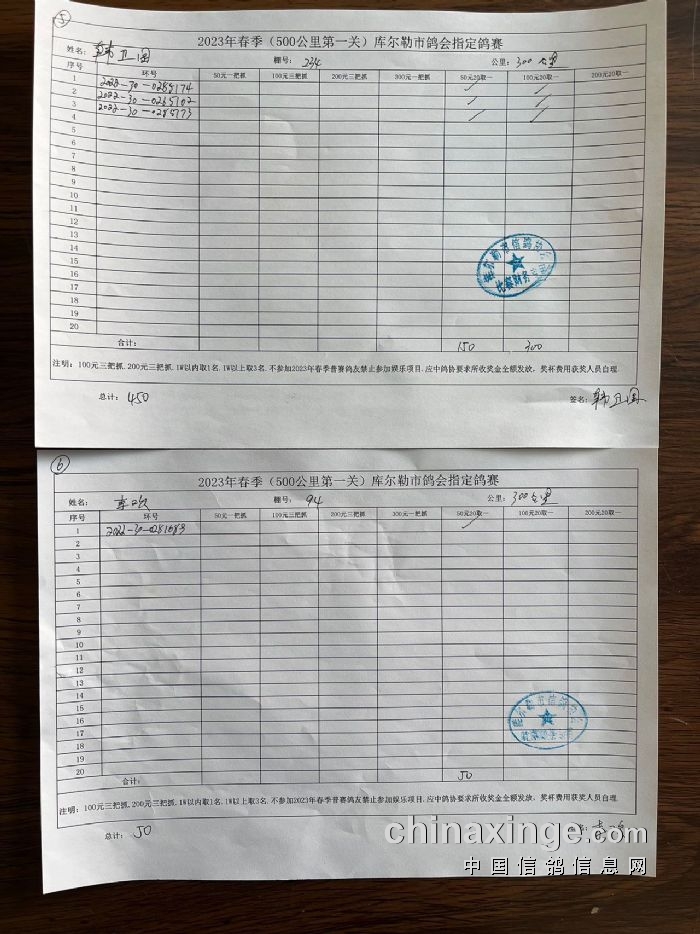 5
2023年春季（500公里第一关）库尔勒市鸽会指定鸽赛
姓名： 韩卫国 棚号： 234 公里： 300公里
序号 环号 50元一把抓 100元三把抓 200元三把抓 300元一把抓 50元20取一 100元20取一 200元20取一
1 2022-30-0288174
2 2022-30-0265102
3 2022-30-0285773
4
5
6
7
8
9
10
11
12
13
14
15
16
17
18
19
20
合计： 150 300
注明：100元三把抓.200元三把抓.1W以内取1名.1W以上取3名.不参加2023年春季普赛鸽友禁止参加娱乐项目.应中鸽协要求所收奖金全额发放，奖杯费用获奖人员自理.
总计： 450 签名： 韩卫国
6
2023年春季（500公里第一关）库尔勒市鸽会指定鸽赛
姓名： 棚号： 94 公里： 300公里
序号 环号 50元一把抓 100元三把抓 200元三把抓 300元一把抓 50元20取一 100元20取一 200元20取一
1 2022-30-0281683
2
3
4
5
6
7
8
9
10
11
12
13
14
15
16
17
18
19
20
合计： 50
注明：100元三把抓.200元三把抓.1W以内取1名.1W以上取3名.不参加2023年春季普赛鸽友禁止参加娱乐项目.应中鸽协要求所收奖金全额发放，奖杯费用获奖人员自理.
总计： 50
chinaxinge.com
中国信鸽信息网